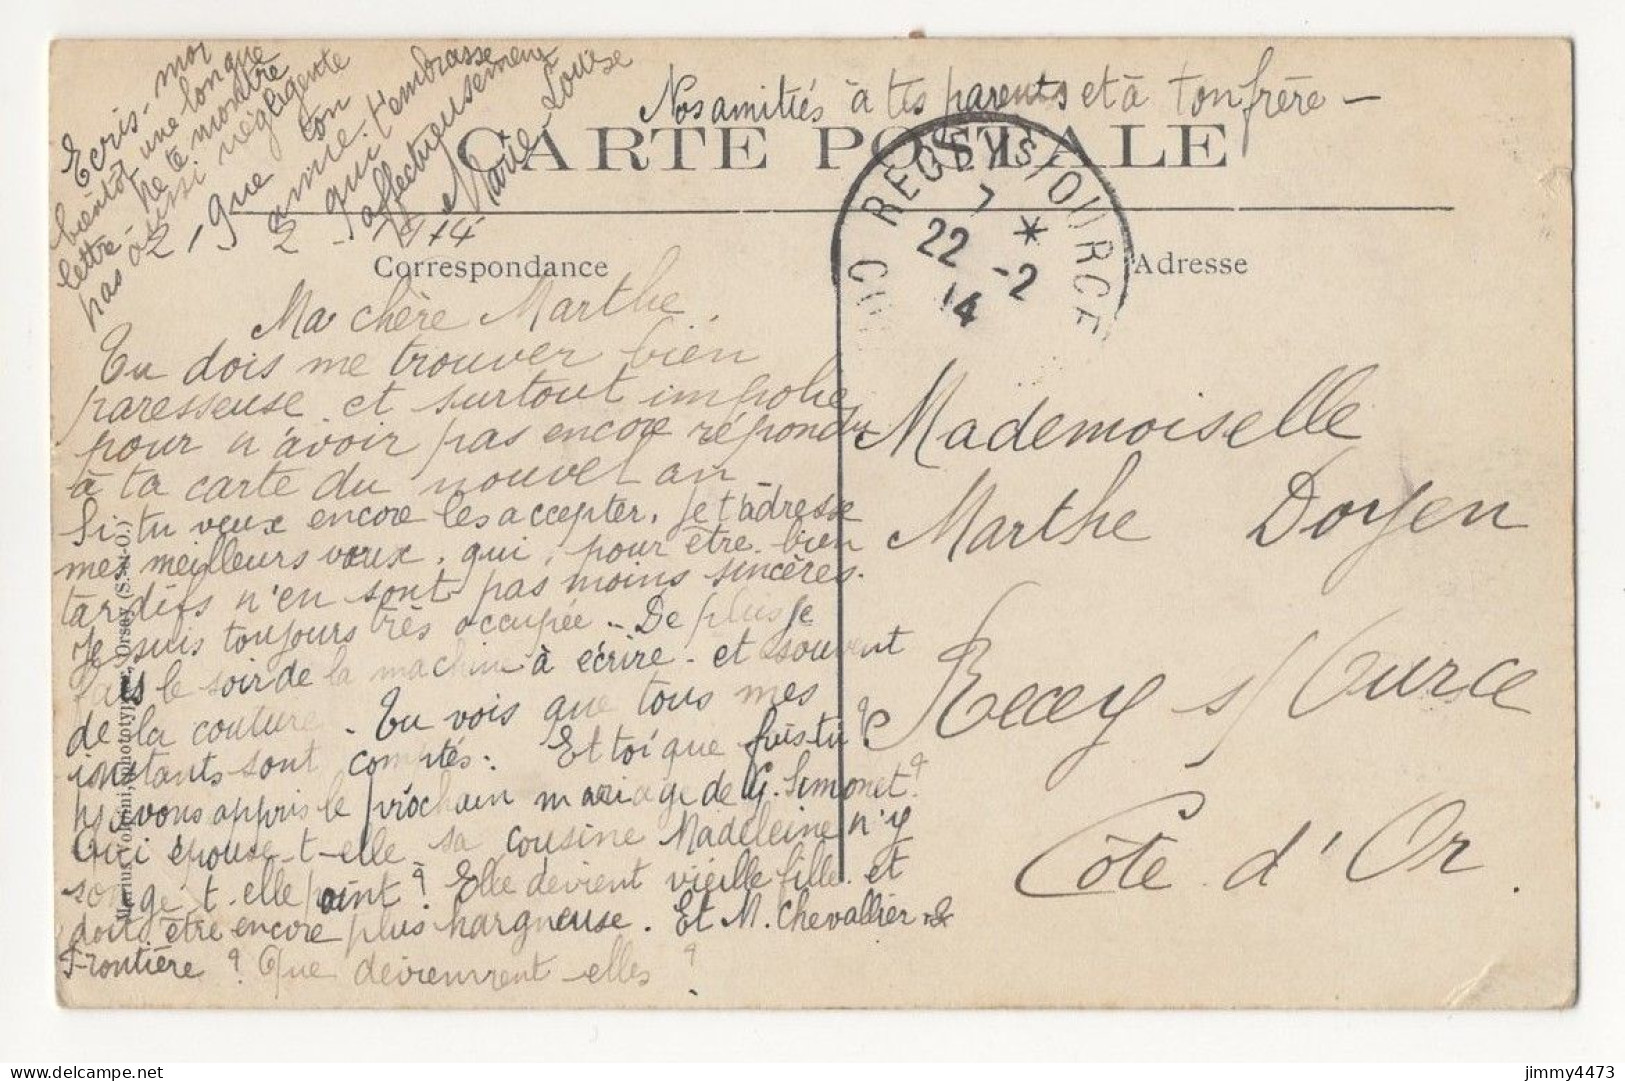 Nos amitiés à tes parents et à ton frère -
CARTE POSTALE
Ecris-moi
bientôt une longue
lettre - ne te montre
pas aussi négligente
que ton
amie qui t'embrasse
affectueusement
Marie-Louise
Correspondance
Adresse
RECEY S/ OURCE
7 *
22 -2
14
Ma chère Marthe,
Tu dois me trouver bien
paresseuse et surtout impolie
pour n'avoir pas encore répondu
à ta carte du nouvel an
Si tu veux encore les accepter, je t'adresse
mes meilleurs vœux, qui, pour être bien
tardifs n'en sont pas moins sincères.
Je suis toujours très occupée - De plus je
fais le soir de la machine à écrire - et souvent
de la couture - Tu vois que tous mes
instants sont comptés: Et toi que fais tu?
avons appris le prochain mariage de G. Simonet?
Qui épouse-t-elle sa cousine Madeleine n'y
songe t-elle point? Elle devient vieille fille et
doit être encore plus hargneuse. Et M. Chevallier &
Frontière? Que deviennent-elles?
Mademoiselle
Marthe Doyen
Recey s/ Ource
Côte d'Or.
Marius Orsay (S.-&-O.)
jimmy4473